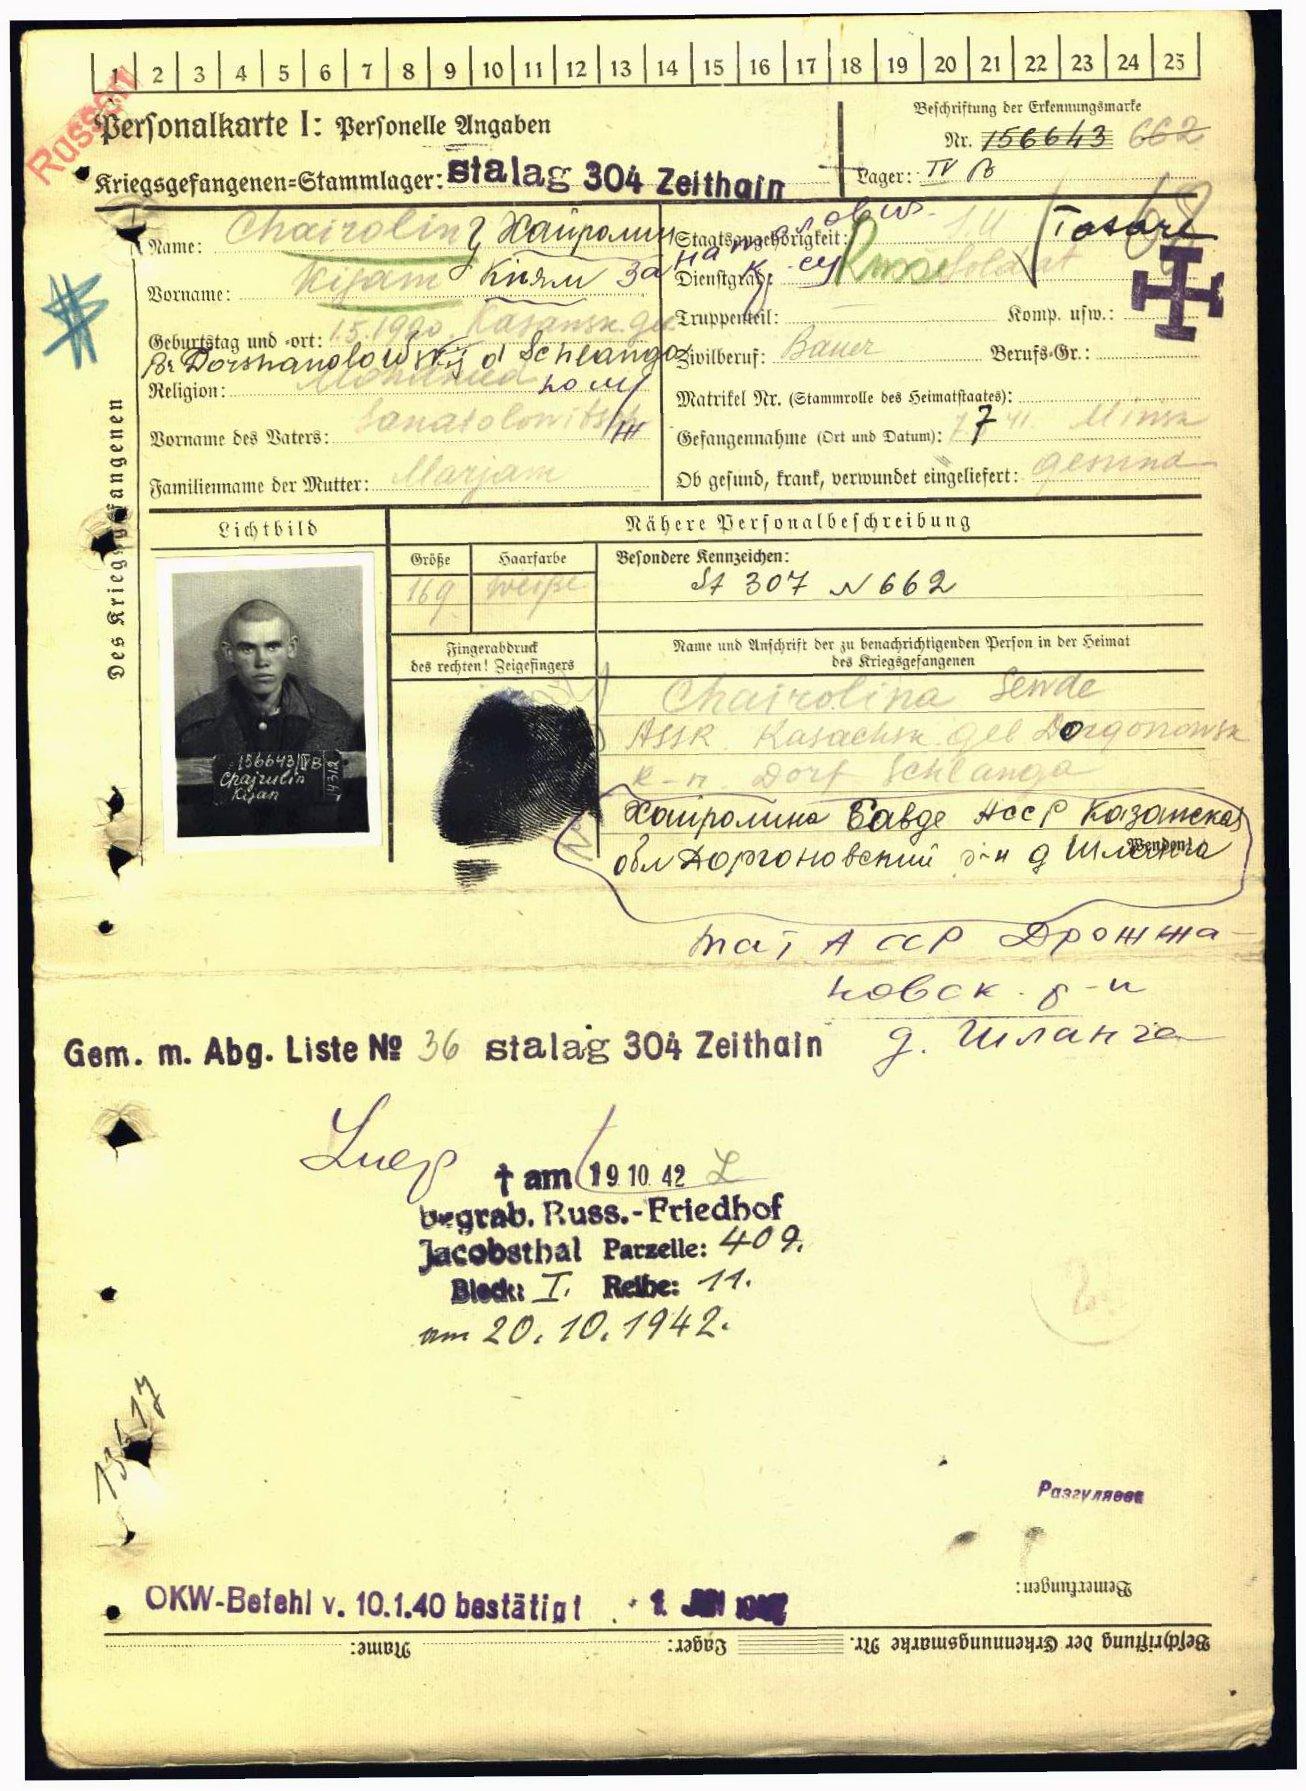 1 2 3 4 5 6 7 8 9 10 11 12 13 14 15 16 17 18 19 20 21 22 23 24 25
Russen
Personalkarte I: Personelle Angaben
Beschriftung der Erkennungsmarke
Nr. 156643 662
Kriegsgefangenen-Stammlager: Stalag 304 Zeithain
Lager: IV B
Des Kriegsgefangenen
Name: Chairolin Хайролин
Vorname: Kijam Киям
Geburtstag und -ort: 1.5.1920 Kasansk. geb
Dorshanolowskij d Schlanga
Religion: Mohamed
Vorname des Vaters: Sanatolowitsch
Familienname der Mutter: Marjam
Staatsangehörigkeit: Russe
Dienstgrad: Soldat
Truppenteil:
Komp. usw.:
Zivilberuf: Bauer
Berufs-Gr.:
Matrikel Nr. (Stammrolle des Heimatstaates):
Gefangennahme (Ort und Datum): 7 7 41. Minsk
Ob gesund, krank, verwundet eingeliefert: gesund
Lichtbild
Nähere Personalbeschreibung
Größe
169
Haarfarbe
weiße
Besondere Kennzeichen:
St 307 N 662
Fingerabdruck
des rechten! Zeigefingers
Name und Anschrift der zu benachrichtigenden Person in der Heimat
des Kriegsgefangenen
Chairolina Sewde
ASSR Kasachsk geb Dorgonowsk
R-n Dorf Schlanga
156643/IVB
Chajrulin
Kijan
Хайролина Савде АССР Казанская
обл Доргоновский р-н д Шланга
Wenden!
Тат АССР Дрожжа-
новск. р-н
д. Шланга
Gem. m. Abg. Liste № 36 Stalag 304 Zeithain
† am 19.10.42
begrab. Russ.-Friedhof
Jacobsthal Parzelle: 409.
Block: I. Reihe: 11.
am 20.10.1942.
13617
Разгуляева
Bemerkungen:
OKW-Befehl v. 10.1.40 bestätigt
Beschriftung der Erkennungsmarke Nr.
Lager:
Name: